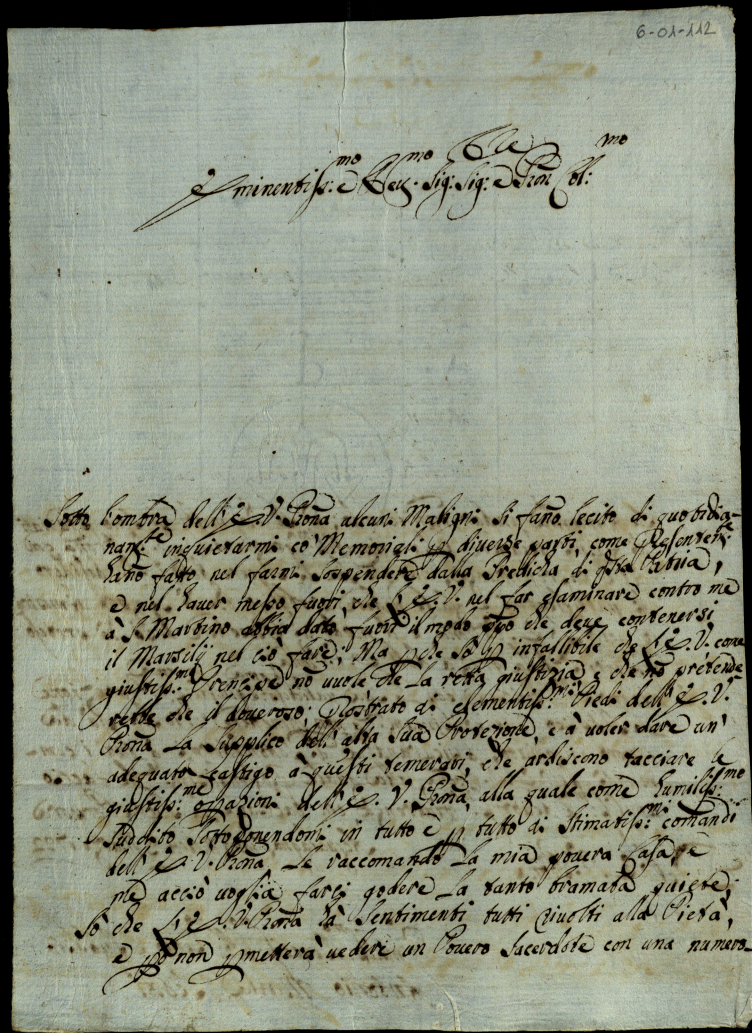 6-01-112
Eminentiss.mo e Reu.mo Sig: Sig: e Pron Col:mo
Sotto l'ombra dell'E. V. Prona alcuni Maligni si fano lecito di quotidia-
nam.te inquietarmi co Memoriali p diverse parti, come
hano fatto nel farmi sospendere dalla Predicha di Patria,
e nel hauer messo fuori, che L'E. V. nel far esaminare contro me
à S. Martino abbia dato fuori il modo che deue contenersi
il Marsilij nel ciò fare; Ma pche sò p infallibile che L'E. V. come
giustiss.mo Prencipe nò uuole che la retta giustizia, e che nò pretende
che il doueroso; Prostrato ai clementiss.mi Piedi dell'E. V.
Prona La Supplico dell'alta sua Protezione, e à uoler dare un'
adeguato castigo à questi temerari, che ardiscono tacciare le
giustiss:me oprazioni dell'E. V. Prona, alla quale come humiliss:mo
suddito sottoponendomi in tutto e p tutto ai stimatiss:mi comandi
dell'E. V. Prona Le raccomando La mia pouera Casa, e
me acciò uoglia farci godere La tanto bramata quiete;
Sò che L'E. V. Prona hà Sentimenti tutti riuolti alla Pietà,
e pò non pmetterà uedere un Pouero Sacerdote con una numero-